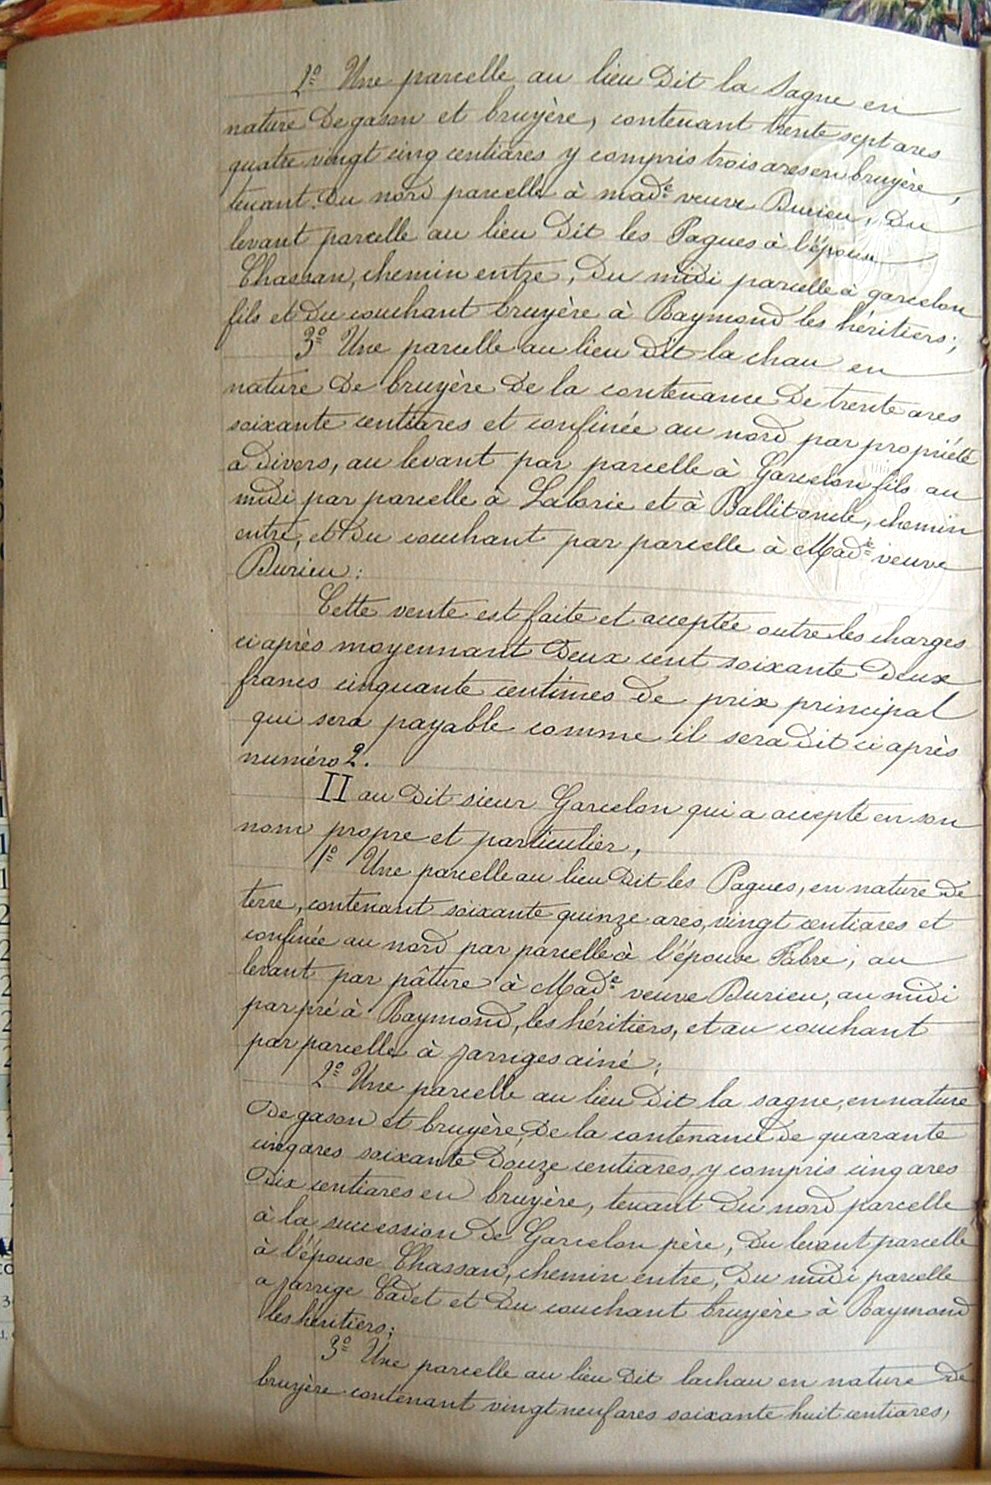 2º Une parcelle au lieu dit la Sagne en
nature de gason et bruyère, contenant trente sept ares
quatre vingt cinq centiares y compris trois ares en bruyère,
tenant du nord parcelle à made veuve Burieu, du
levant parcelle au lieu dit les Pagues à l'épouse
Chassan, chemin entre, du midi parcelle à garcelon
fils et du couchant bruyère à Raymond les héritiers;
3º Une parcelle au lieu dit la chau en
nature de bruyère de la contenance de trente ares
soixante centiares et confinée au nord par propriété
à divers, au levant par parcelle à Garcelon fils au
midi par parcelle à Laborie et à Ballitende, chemin
entre, et du couchant par parcelle à Made veuve
Burieu:
Cette vente est faite et acceptée outre les charges
ci après moyennant deux cent soixante deux
francs cinquante centimes de prix principal
qui sera payable comme il sera dit ci après
numéro 2.
II au dit sieur Garcelon qui a accepté en son
nom propre et particulier,
1º Une parcelle au lieu dit les Pagues, en nature de
terre, contenant soixante quinze ares, vingt centiares et
confinée au nord par parcelle à l'épouse Fabre, au
levant par pâture à Made veuve Burieu, au midi
par pré à Raymond, les héritiers, et au couchant
par parcelle à Jarriges ainé;
2º Une parcelle au lieu dit la sagne, en nature
de gason et bruyère, de la contenance de quarante
cinq ares soixante douze centiares, y compris cinq ares
dix centiares en bruyère, tenant du nord parcelle
à la succession de Garcelon père, du levant parcelle
à l'épouse Chassan, chemin entre, du midi parcelle
a Jarrige Cadet et du couchant bruyère à Raymond
les héritiers;
3º Une parcelle au lieu dit lachau en nature de
bruyère contenant vingt neuf ares soixante huit centiares,